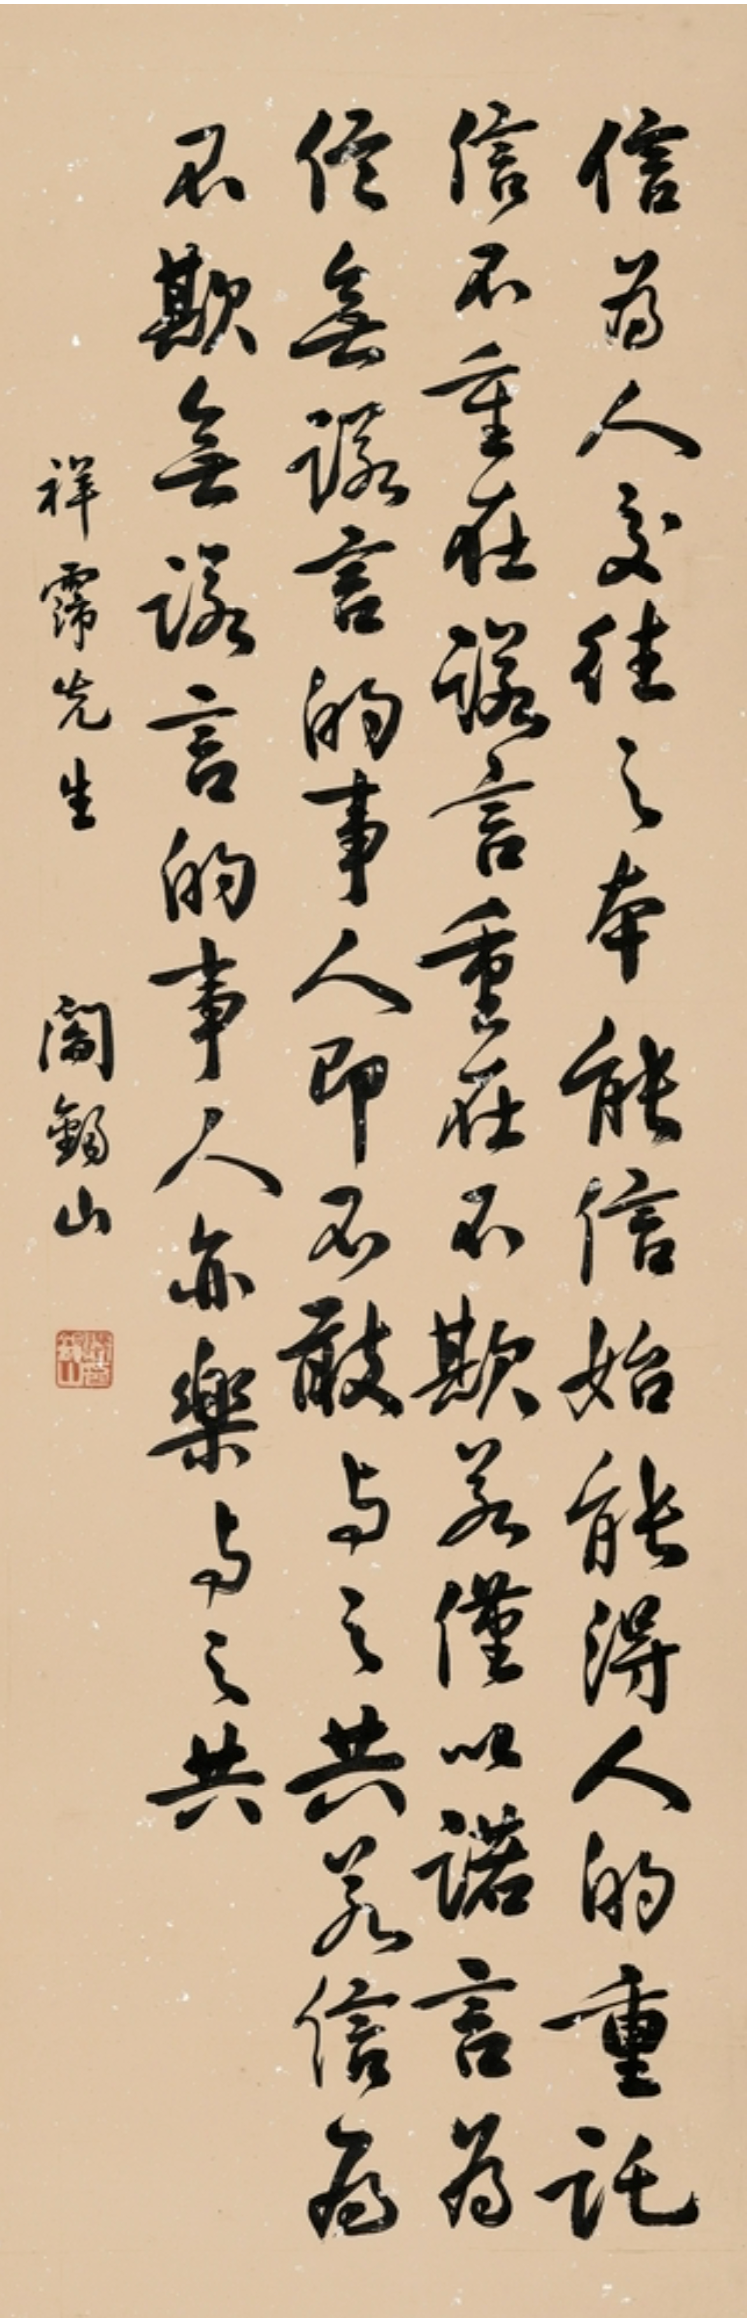 信為人交往之本能信始能得人的重託
信不重在諾言重在不欺若僅以諾言為
信無諾言的事人即不敢与之共若信為
不欺無諾言的事人亦樂与之共
祥霈先生 閻錫山